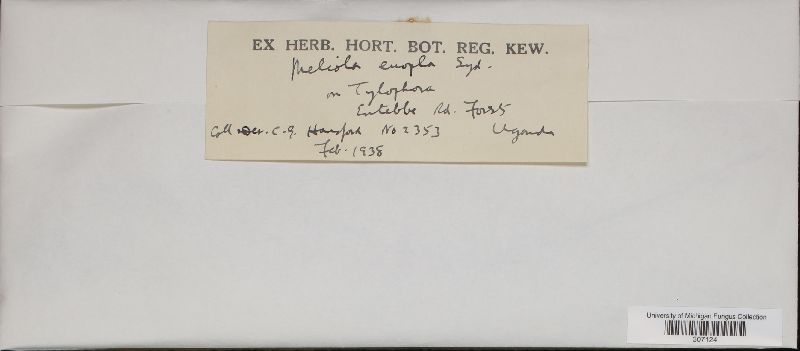 EX HERB. HORT. BOT. REG. KEW.
Meliola enopla Syd.
on Tylophora
Entebbe Rd. Forest
Coll. det. C.G. Hansford No 2353 Uganda
Feb. 1938
University of Michigan Fungus Collection
307124